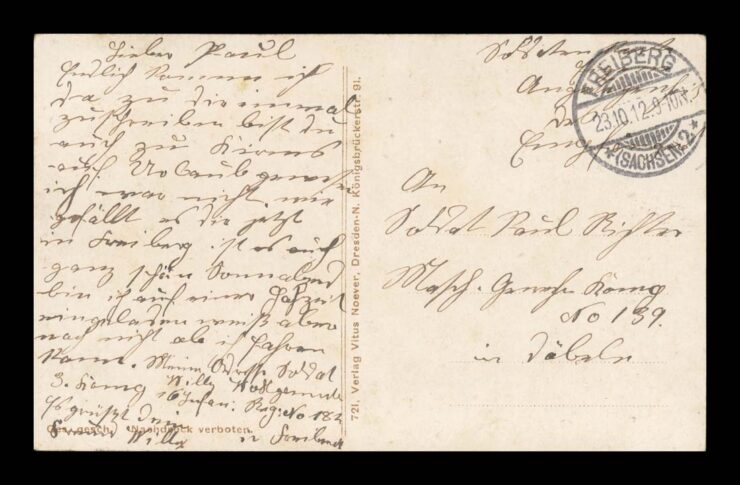 Lieber Paul
Endlich komme ich
da zu dir einmal
zuschreiben bist du
auch zu Kirmes
auf Urlaub gewesen
ich war nicht wie
gefällt es dir jetzt
in Freiberg ist es auch
ganz schön Sonnabend
bin ich auf eine Hochzeit
eingeladen weiß aber
noch nicht ob ich fahren
kann. Meine Adresse Soldat
Willy
3. Komp 16 Infan. Reg. No 182
in Freiberg
Es grüßt dein
Freund Willy
Ges. gesch. Nachdruck verboten.
721. Verlag Vitus Noever, Dresden-N. Königsbrückerstr. 91.
FREIBERG
23.10.12.9-10N.
*(SACHSEN)2*
An
Soldat Paul Richter
Masch. Gewehr Komp
No 139.
in Döbeln